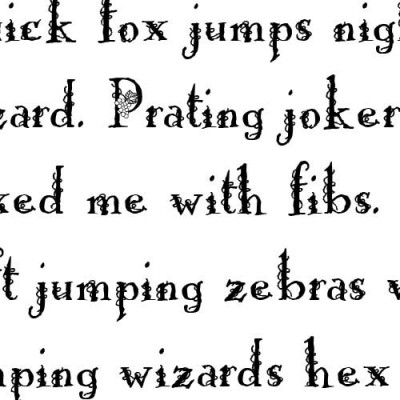 uick fox jumps nig
zard. Prating joker
xed me with fibs.
ft jumping zebras v
mping wizards hex